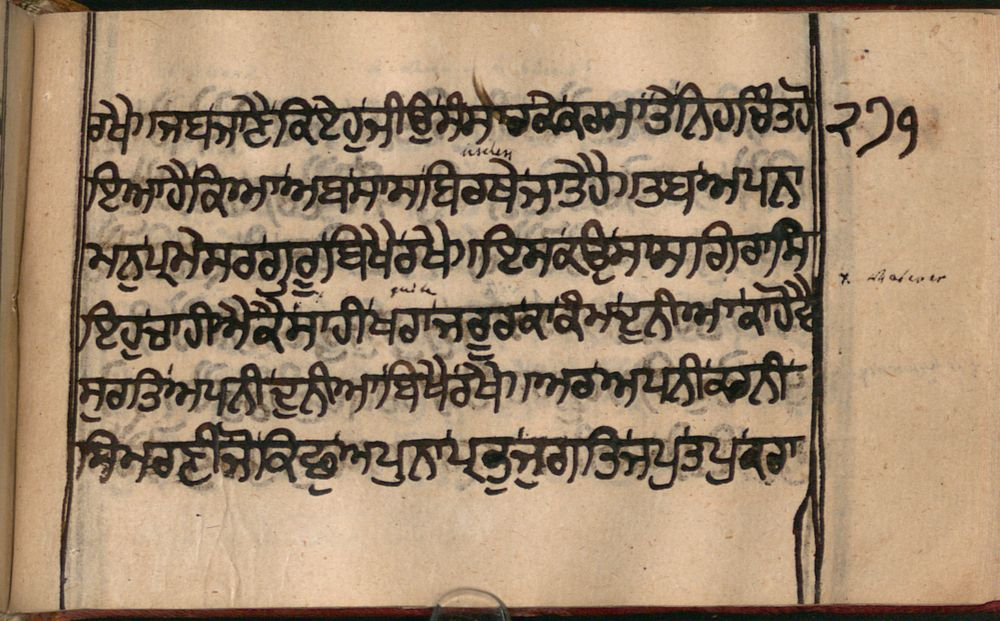 ਰਖੈ।ਜਬਜਾਣੈਕਿਏਹੁਜੀਉਸੰਸਾਰਕੇਕਰਮਾਤੇਨਿਹਚਿੰਤਹੋ ੨੭੧
useless
ਇਆਹੈਕਿਆਅਬਸਾਸਬਿਰਥੇਜਾਤੇਹੈ।ਤਬਅਪਨਾ
ਮਨੁਪ੍ਮੇਸਰਗੁਰੂਬਿਖੈਰਖੈ।ਇਸਕਉਸਾਸਗਿਰਾਸਿ
quite
ਇਹੁਚਾਹੀਐਕੈਸਾਹੀਖਰਾਜਰੂਰਕਾਕੰਮਦੁਨੀਆਕਾਹੋਵੈ
ਸੁਰਤਿਅਪਨੀਦੁਨੀਆਬਿਖੈਰਖੈ।ਅਰਅਪਨੀਕਰਨੀ
ਸਿਮਰਣੀਜੋਕਿਛੁਅਪੁਨਾਪ੍ਭੁਜੁਗਤਿਜਪੁਤਪੁਕਰਾ